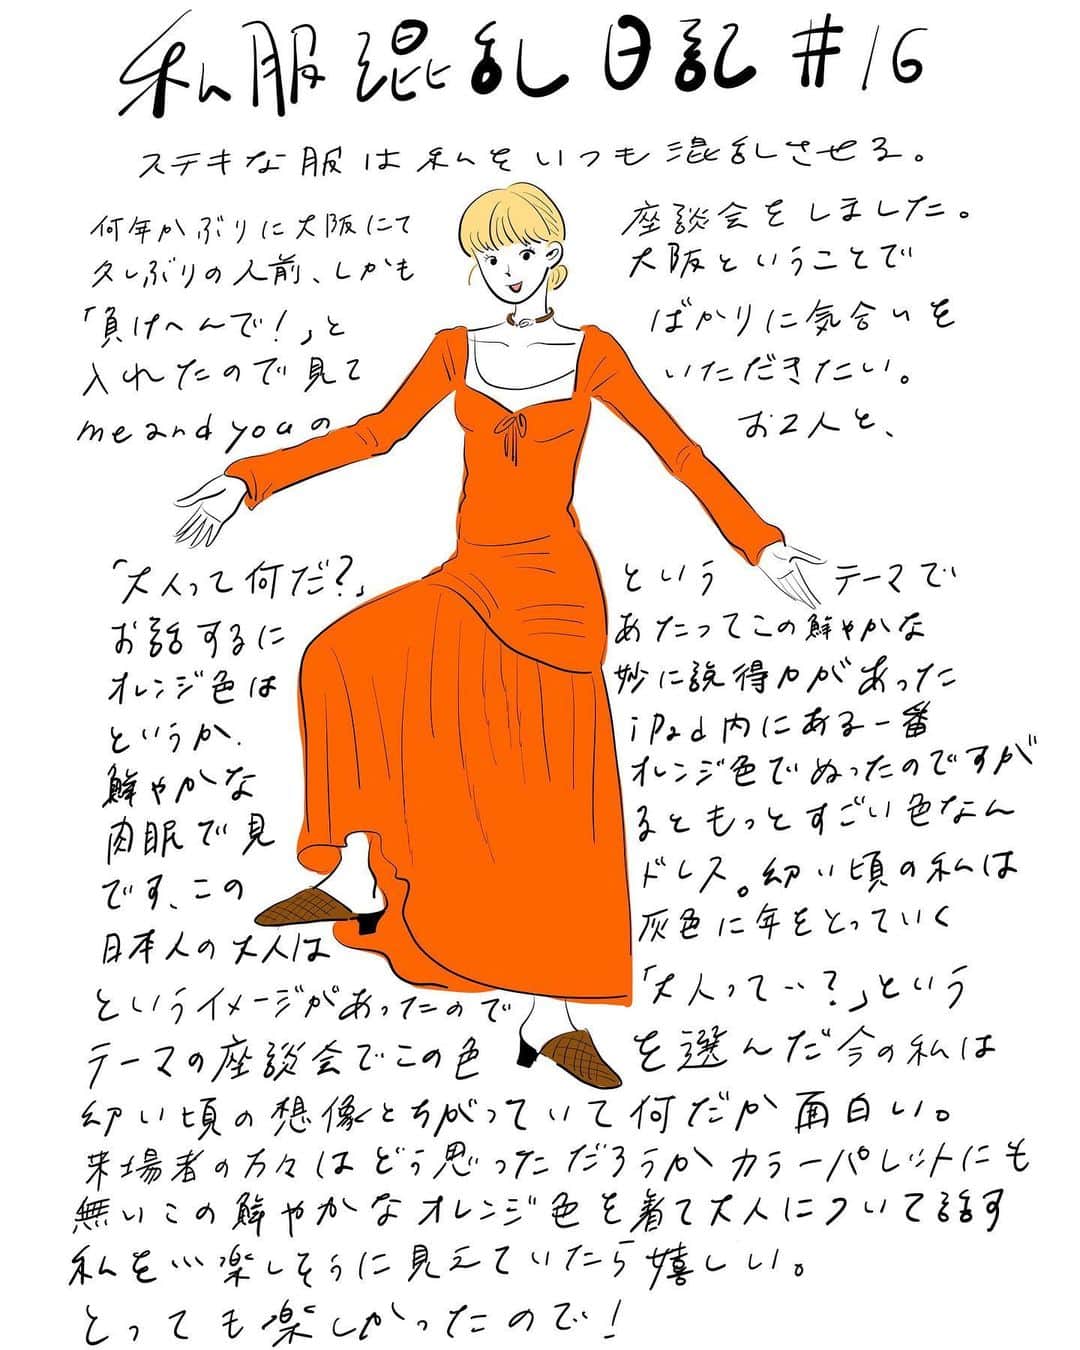 私服混乱日記#16
ステキな服は私をいつも混乱させる。
何年かぶりに大阪にて座談会をしました。
久しぶりの人前、しかも大阪ということで
「負けへんで!」とばかりに気合いを
入れたので見ていただきたい。
me and youのお2人と、
「大人って何だ?」というテーマで
お話するにあたってこの鮮やかな
オレンジ色は妙に説得力があった
というか、iPad内にある一番
鮮やかなオレンジ色でぬったのですが
肉眼で見るともっとすごい色なん
です、このドレス。幼い頃の私は
日本人の大人は灰色に年をとっていく
というイメージがあったので「大人って…?」という
テーマの座談会でこの色を選んだ今の私は
幼い頃の想像とちがっていて何だか面白い。
来場者の方々はどう思っただろうかカラーパレットにも
無いこの鮮やかなオレンジ色を着て大人について話す
私を…楽しそうに見えていたら嬉しい。
とっても楽しかったので!